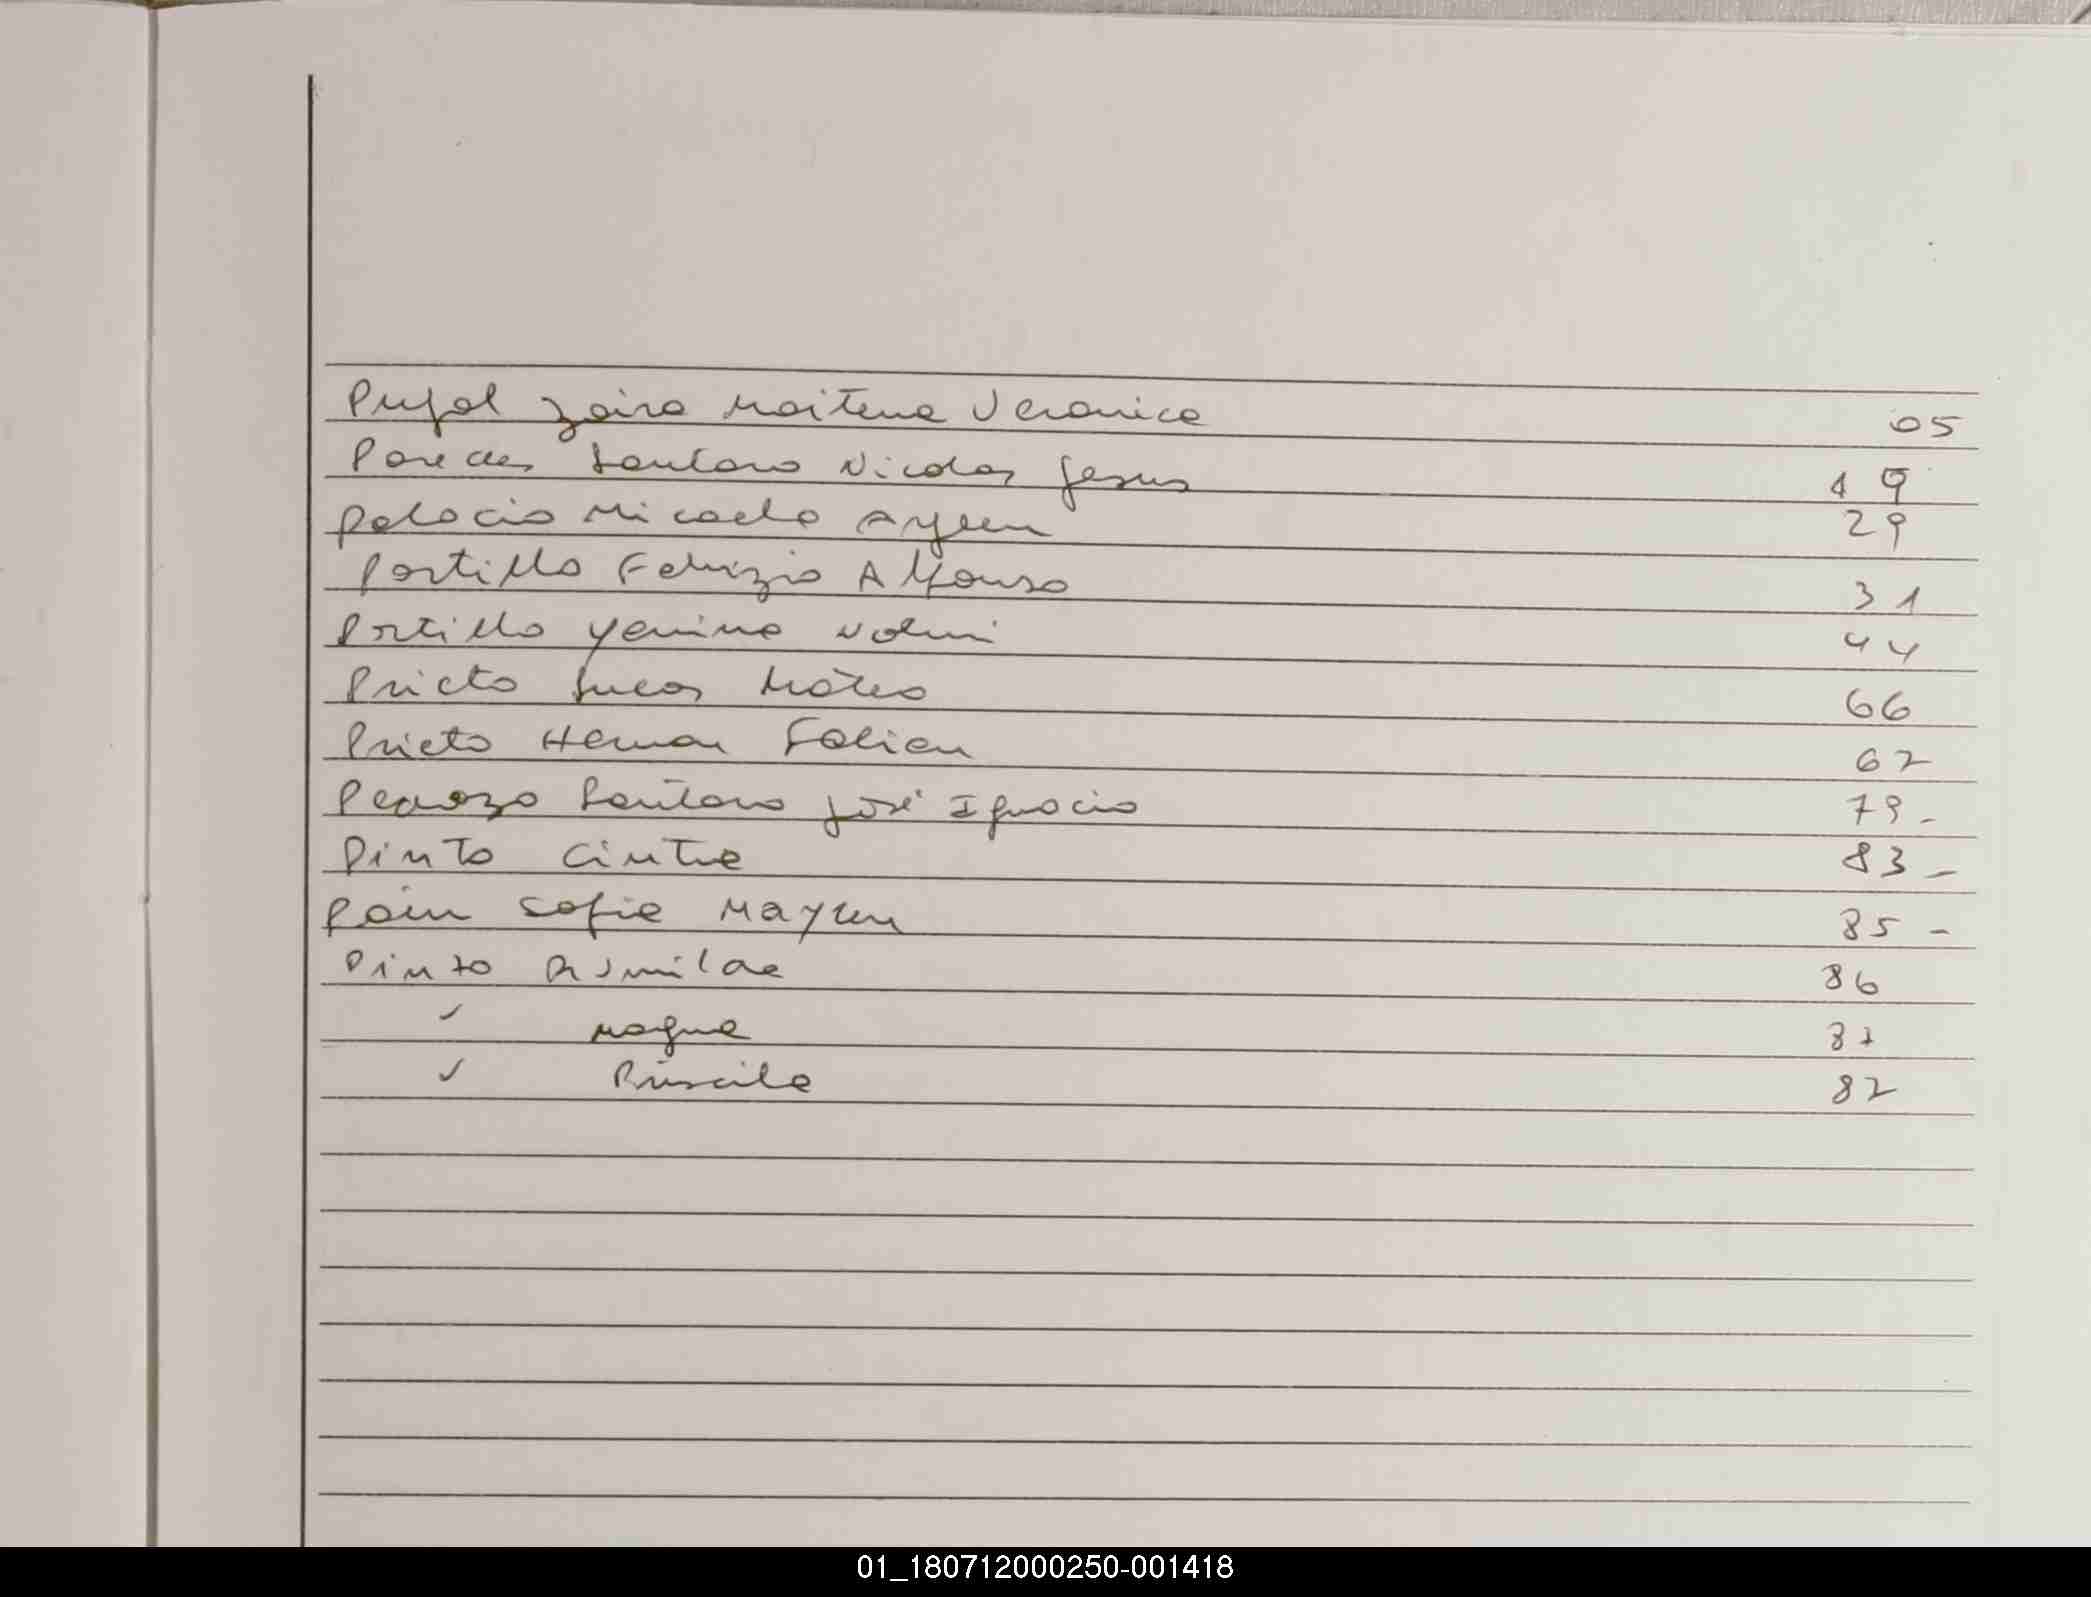 Pujol Zaira Maitena Veronica 05
Paredes Lautaro Nicolas Jesus 19
Palacio Micaela Aylen 29
Portillo Fabrizio Alfonso 31
Portillo Yanina Noemi 44
Prieto Lucas Mateo 66
Prieto Hernan Fabian 67
Pedrozo Lautaro José Ignacio 79 -
Pinto Cintia 83 -
Pain Sofia Maylen 85 -
Pinto 86
✓ Magna 87
✓ Priscila 82
01_180712000250-001418